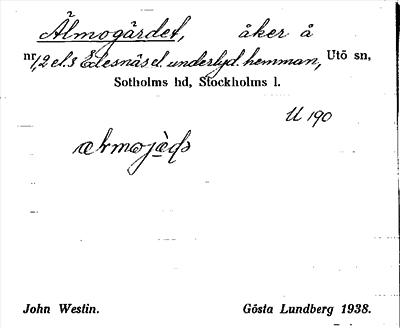 Älmogärdet, åker å
nr 1,2 el. 3 Edesnäs el. underlyd. hemman, Utö sn,
Sotholms hd, Stockholms l.
U 190
John Westin. Gösta Lundberg 1938.